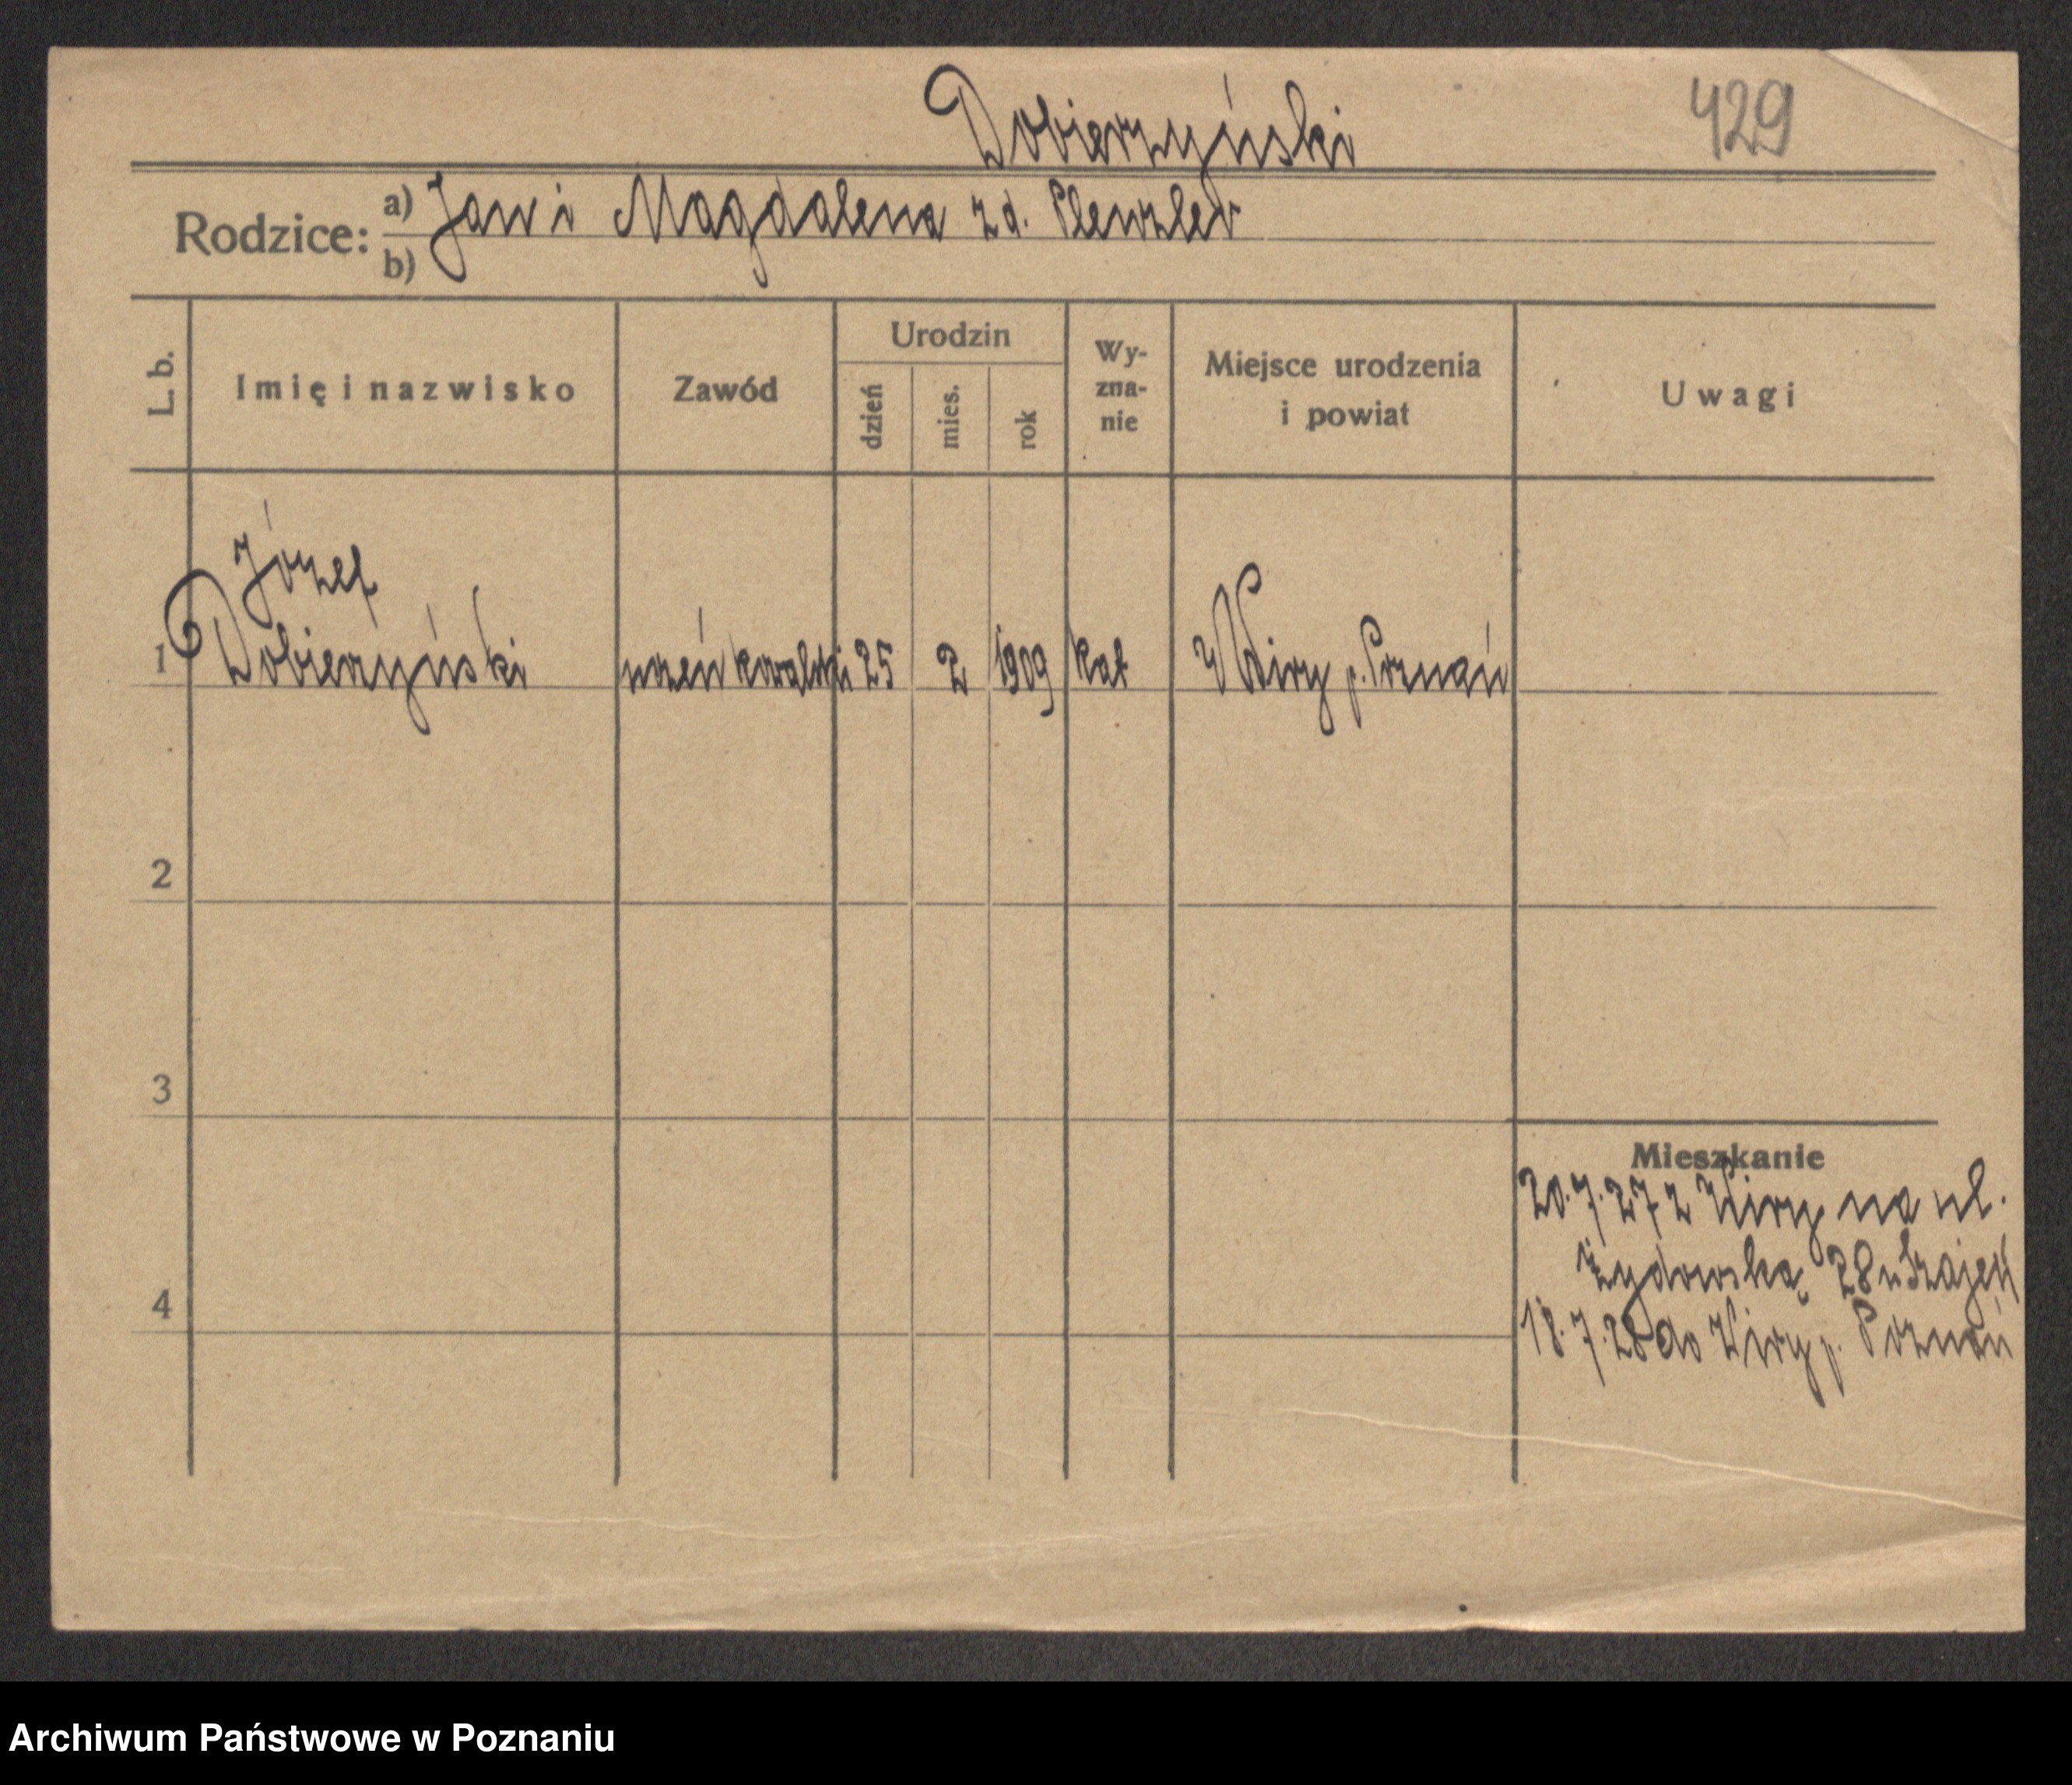 Dobierzyński
429
Rodzice: a) Jan i Magdalena zd.
b)
L. b.
Imię i nazwisko
Zawód
Urodzin
dzień
mies.
rok
Wy-
zna-
nie
Miejsce urodzenia
i powiat
Uwagi
Józef
1 Dobierzyński uczeń kowalski 25 2 1909 kat Wiry p. Poznań
2
3
Mieszkanie
20.7.27 z Wiry na ul.
Żydowską 28 u
4
18.7.28 do Wiry p. Poznań
Archiwum Państwowe w Poznaniu